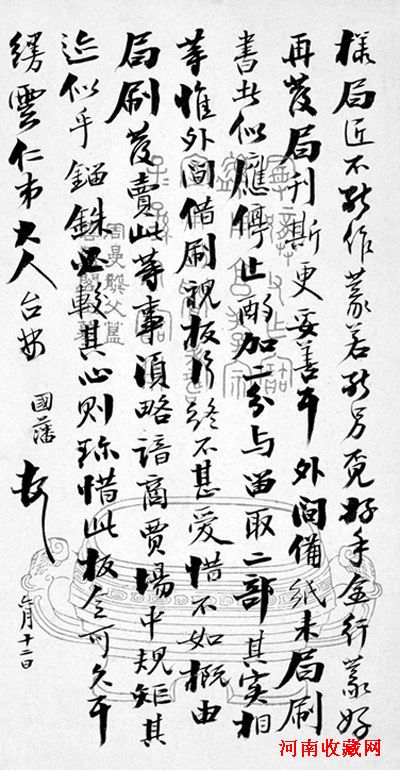 樣局匠不能作篆若能另覓好手全行篆好
再發局刊斯更妥善耳外間備紙來局刷
書此似應停止酌加二分与留取二部其實相
等惟外間借刷視板終不甚愛惜不如概由
局刷發賣此等事須略諳商賈場中規矩其
迹似乎錙銖必較其心則珍惜此板全可久耳
繆雲仁弟大人台安 國藩
六月十二日
周曼龏父盨
河南收藏网